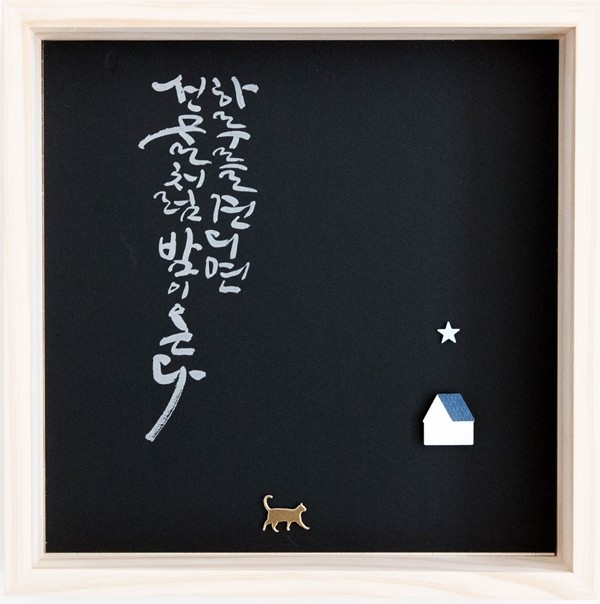 하루를 견디면
선물처럼 밤이 온다